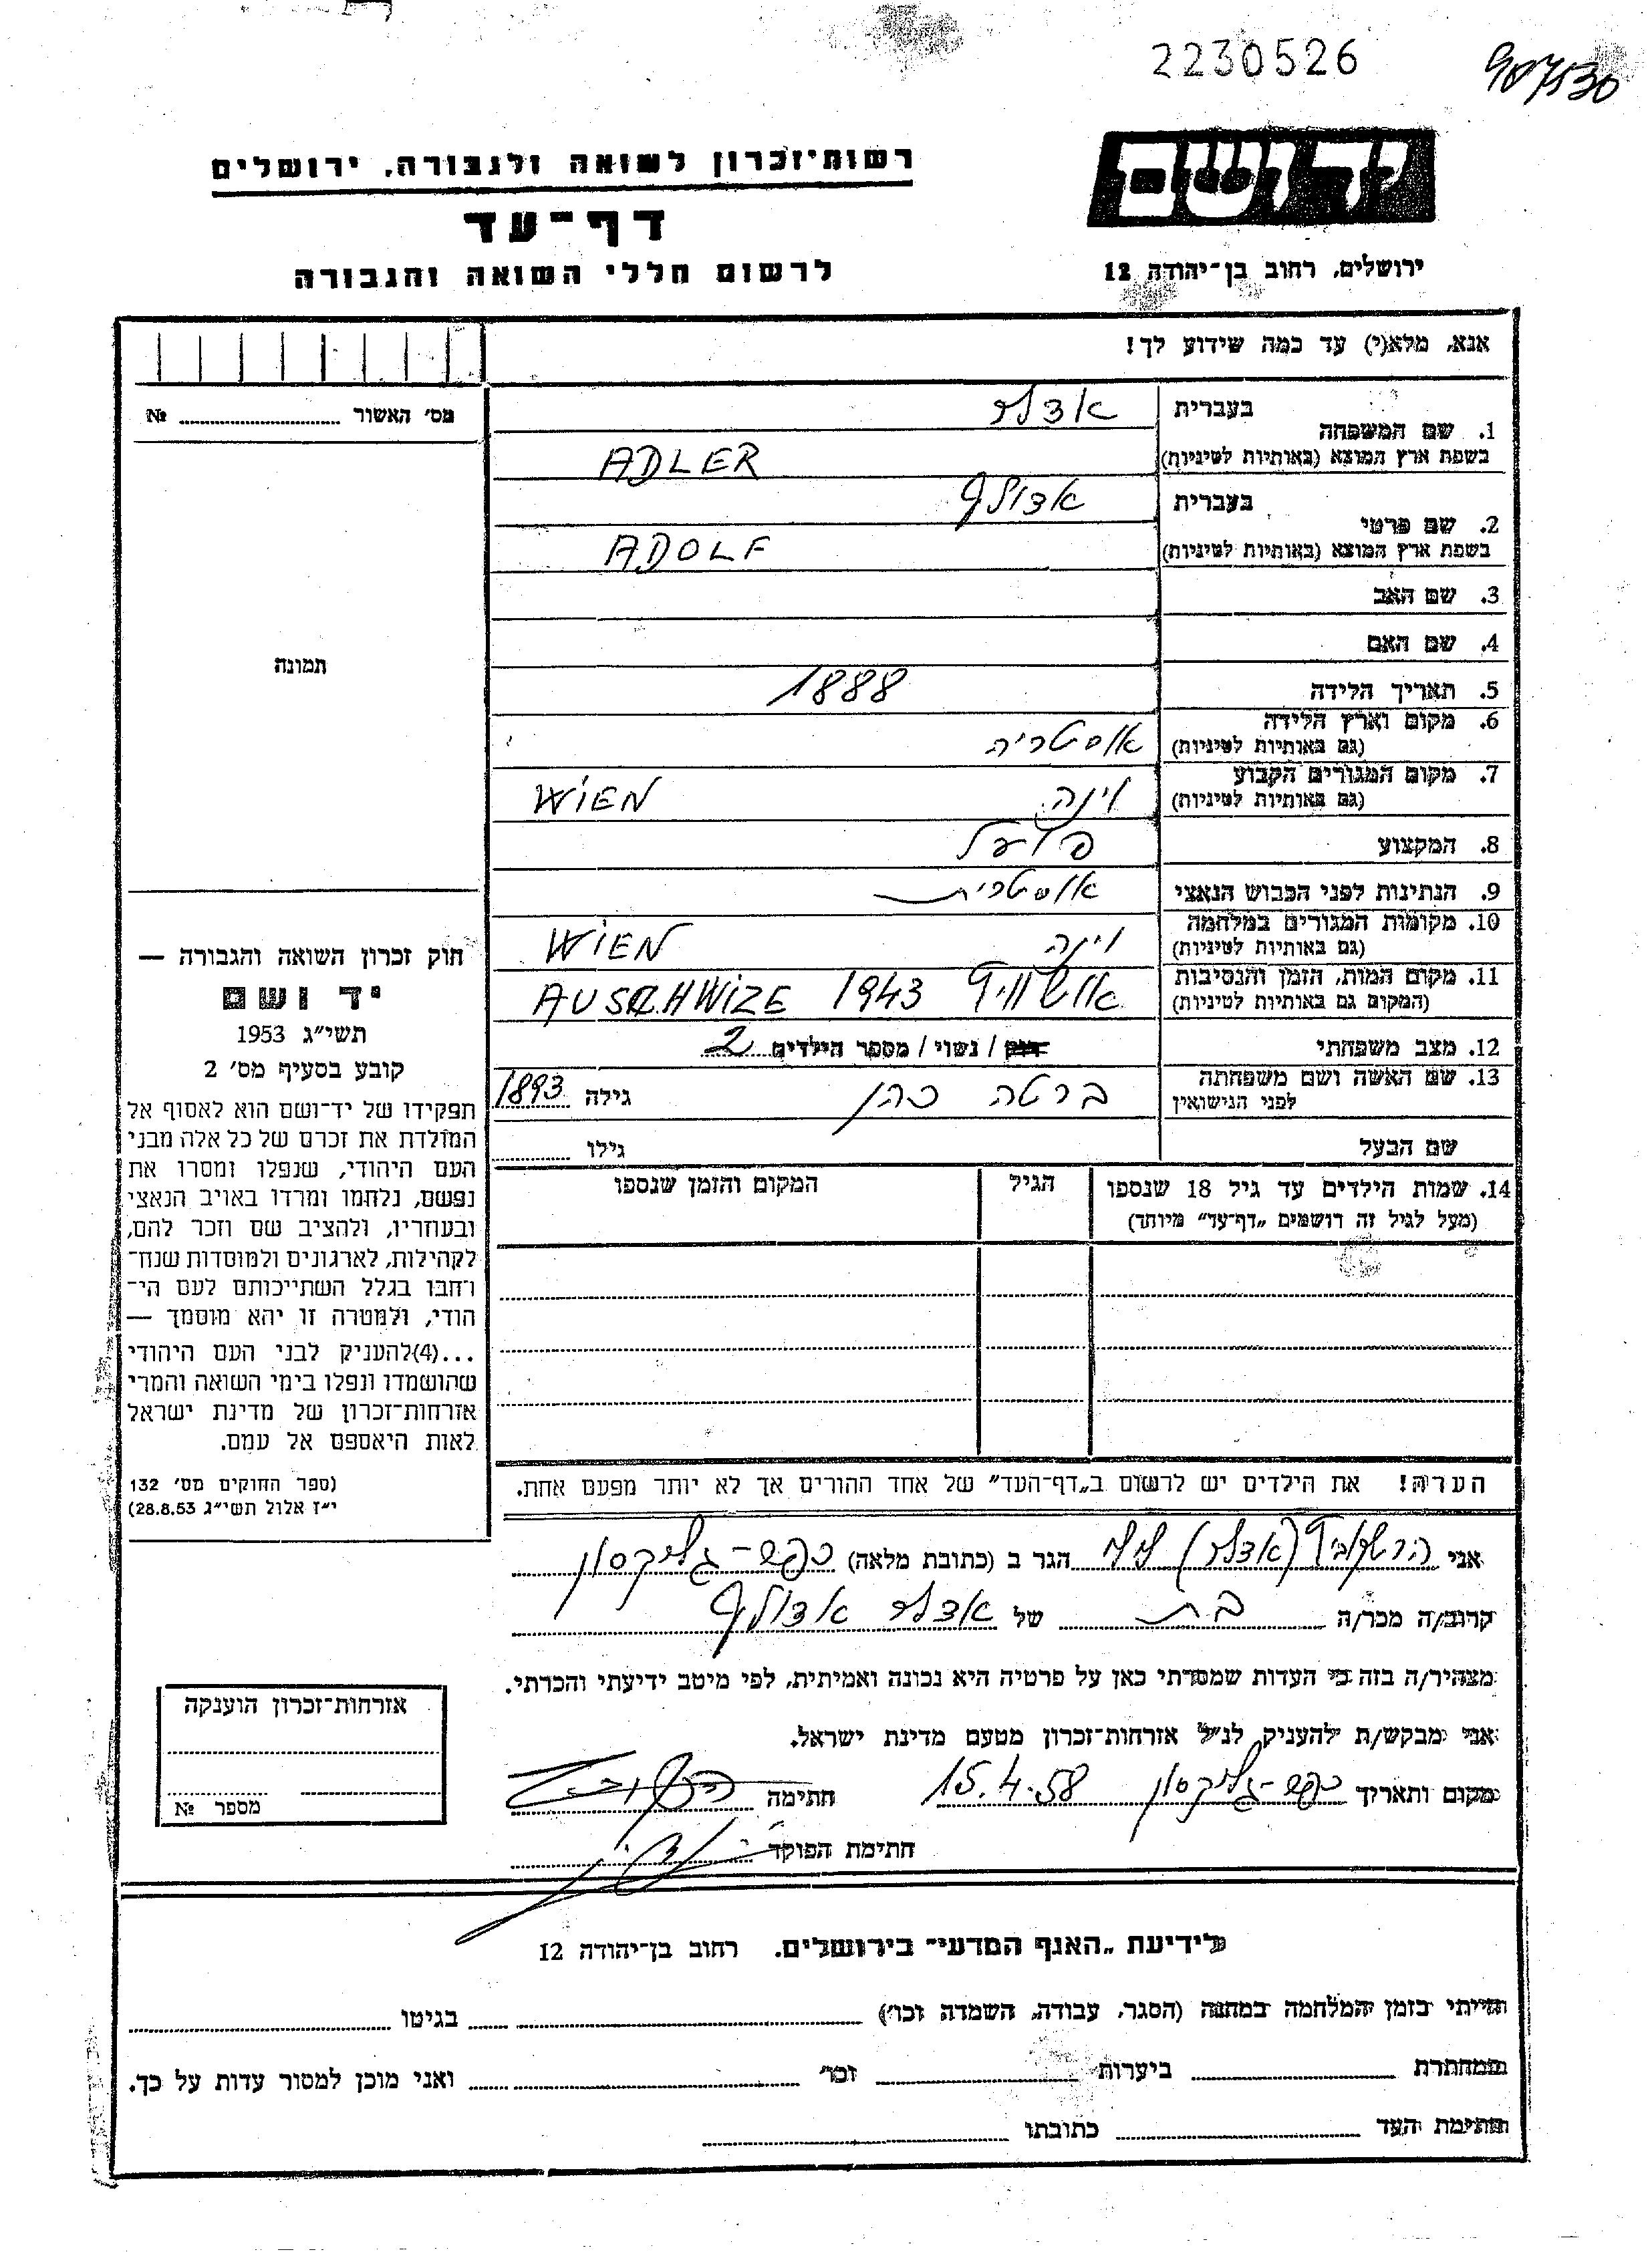 2230526
907530
ידושם
רשות־זכרון לשואה ולגבורה, ירושלים
דף־עד
לרשום חללי השואה והגבורה
ירושלים, רחוב בן־יהודה 12
אנא, מלא(י) עד כמה שידוע לך!
מס׳ האשור № 
1. שם המשפחה
בעברית אדלר
בשפת ארץ המוצא (באותיות לטיניות) ADLER
2. שם פרטי
בעברית אדולף
בשפת ארץ המוצא (באותיות לטיניות) ADOLF
3. שם האב
4. שם האם
תמונה
5. תאריך הלידה 1888
6. מקום וארץ הלידה
(גם באותיות לטיניות) אוסטריה
7. מקום המגורים הקבוע
(גם באותיות לטיניות) וינה WIEN
8. המקצוע פועל
9. הנתינות לפני הכבוש הנאצי אוסטרית
10. מקומות המגורים במלחמה
(גם באותיות לטיניות) וינה WIEN
11. מקום המות, הזמן והנסיבות
(המקום גם באותיות לטיניות) אושוויץ 1943 AUSCHWIZE
12. מצב משפחתי רווק / נשוי / מספר הילדים 2
13. שם האשה ושם משפחתה
לפני הנישואין ברטה כהן גילה 1893
שם הבעל גילו
14. שמות הילדים עד גיל 18 שנספו
(מעל לגיל זה רושמים „דף־עד״ מיוחד)
הגיל
המקום והזמן שנספו
חוק זכרון השואה והגבורה —
יד ושם
תשי״ג 1953
קובע בסעיף מס׳ 2
תפקידו של יד־ושם הוא לאסוף אל
המולדת את זכרם של כל אלה מבני
העם היהודי, שנפלו ומסרו את
נפשם, נלחמו ומרדו באויב הנאצי
ובעוזריו, ולהציב שם וזכר להם,
לקהילות, לארגונים ולמוסדות שנח־
רבו בגלל השתייכותם לעם הי־
הודי, ולמטרה זו יהא מוסמך —
...(4)להעניק לבני העם היהודי
שהושמדו ונפלו בימי השואה והמרי
אזרחות־זכרון של מדינת ישראל
לאות היאספם אל עמם.
(ספר החוקים מס׳ 132
י״ז אלול תשי״ג 28.8.53)
הערה! את הילדים יש לרשום ב„דף־העד״ של אחד ההורים אך לא יותר מפעם אחת.
אני הרשקוביץ (אדלר) הגר ב (כתובת מלאה) כפר־גליקסון
קרוב/ה מכר/ה בת של אדלר אדולף
מצהיר/ה בזה כי העדות שמסרתי כאן על פרטיה היא נכונה ואמיתית, לפי מיטב ידיעתי והכרתי.
אני מבקש/ת להעניק לנ״ל אזרחות־זכרון מטעם מדינת ישראל.
מקום ותאריך כפר־גליקסון 15.4.58 חתימה
חתימת הפוקד
אזרחות־זכרון הוענקה
מספר №
לידיעת „האגף המדעי״ בירושלים. רחוב בן־יהודה 12
הייתי בזמן המלחמה במחנה (הסגר, עבודה, השמדה וכו׳) בגיטו
במחתרת ביערות וכו׳ ואני מוכן למסור עדות על כך.
חתימת העד כתובתו